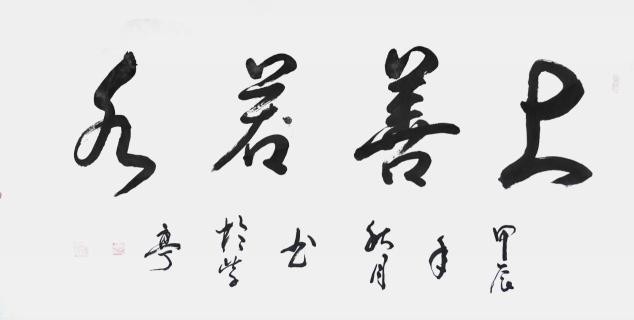 上善若水
甲辰年秋月书於紫亭